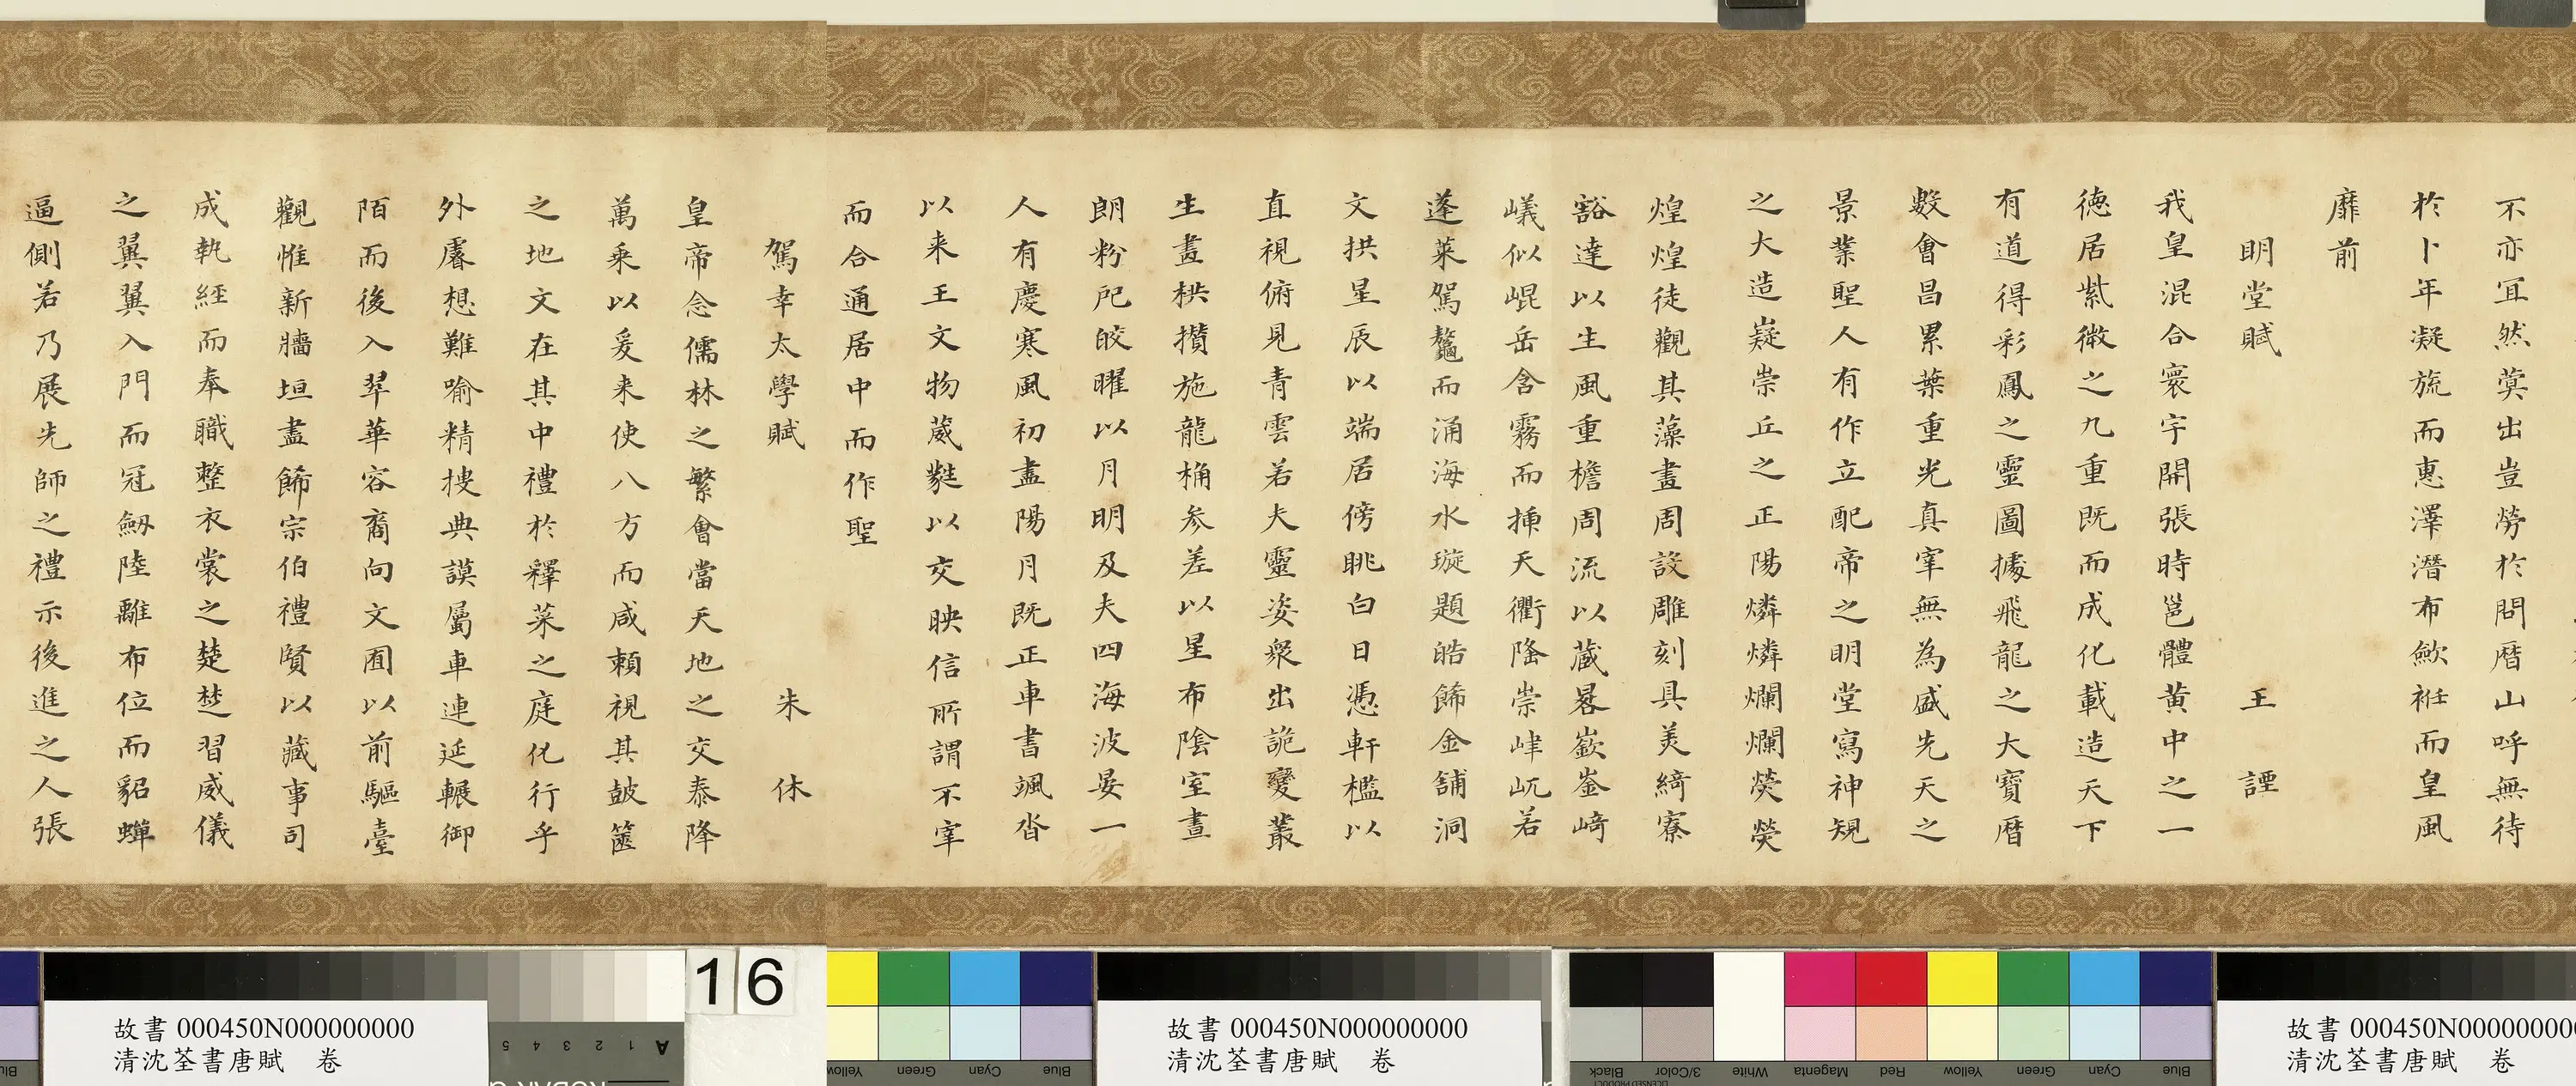 不亦宜然蓂出豈勞於問曆山呼無待
於卜年凝旒而惠澤潛布歛衽而皇風
靡前
明堂賦 王諲
我皇混合寰宇開張時邕體黄中之一
徳居紫微之九重既而成化載造天下
有道得彩鳳之靈圖據飛龍之大寶曆
數會昌累葉重光真宰無為盛先天之
景業聖人有作立配帝之明堂寫神規
之大造嶷崇丘之正陽燐燐爛爛熒熒
煌煌徒觀其藻畫周設雕刻具美綺寮
豁達以生風重檐周流以藏晷嶔崟崎
嶬似崐岳含霧而揷天衢隆崇峍屼若
蓬莱駕鼇而涌海水璇題皓飾金鋪洞
文拱星辰以端居傍眺白日憑軒檻以
直視俯見青雲若夫靈姿衆出詭變叢
生畫栱攢施龍桷参差以星布陰室晝
朗粉戺皎曜以月明及夫四海波晏一
人有慶寒風初盡陽月既正車書颯沓
以来王文物葳蕤以交映信所謂不宰
而合通居中而作聖
駕幸太學賦 朱休
皇帝念儒林之繁會當天地之交泰降
萬乗以爰来使八方而咸頼視其鼓篋
之地文在其中禮於釋菜之庭化行乎
外廱想難喻精搜典謨屬車連延輾御
陌而後入翠華容裔向文囿以前驅臺
觀惟新牆垣盡飾宗伯禮賢以藏事司
成執經而奉職整衣裳之楚楚習威儀
之翼翼入門而冠劒陸離布位而貂蟬
逼側若乃展先師之禮示後進之人張
16
故書000450N000000000
清沈荃書唐賦 卷
故書000450N000000000
清沈荃書唐賦 卷
故書000450N000000000
清沈荃書唐賦 卷
A 1 2 3 4 5
Blue
Cyan
Green
Yellow
Blue
Cyan
Green
Yellow
Red
Magenta
White
3/Color
Black